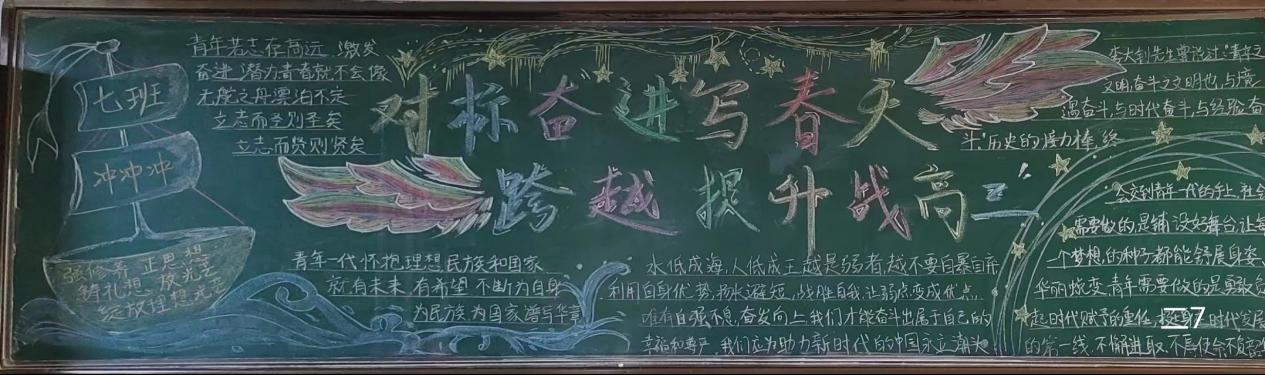 七班
冲冲冲
强修养 正思想
铸礼想 放光芒
绽放理想光芒
青年若志存高远 激发
奋进潜力青春就不会像
无舵之舟漂泊不定
立志而圣则圣矣
立志而贤则贤矣
对标奋进写春天
跨越提升战高二
李大钊先生曾说过:"青年之
文明奋斗之文明也,与境
遇奋斗,与时代奋斗,与经验奋
斗"历史的接力棒,终
会交到青年一代的手上,社会
需要做的是铺设好舞台让每
一个梦想的种子都能舒展身姿
华丽蜕变 青年需要做的是勇敢负
起时代赋予的重任 时代发展
的第一线,不懈进取,不辱使命不负韶
青年一代怀抱理想民族和国家
就有未来 有希望 不断为自身
为民族 为国家谱写华章
水低成海,人低成王越是弱者,越不要自暴自弃
利用自身优势,扬长避短,战胜自我,让弱点变成优点,
唯有自强不息,奋发向上,我们才能奋斗出属于自己的
幸福和尊严,我们应为助力新时代的中国永立潮头
三7